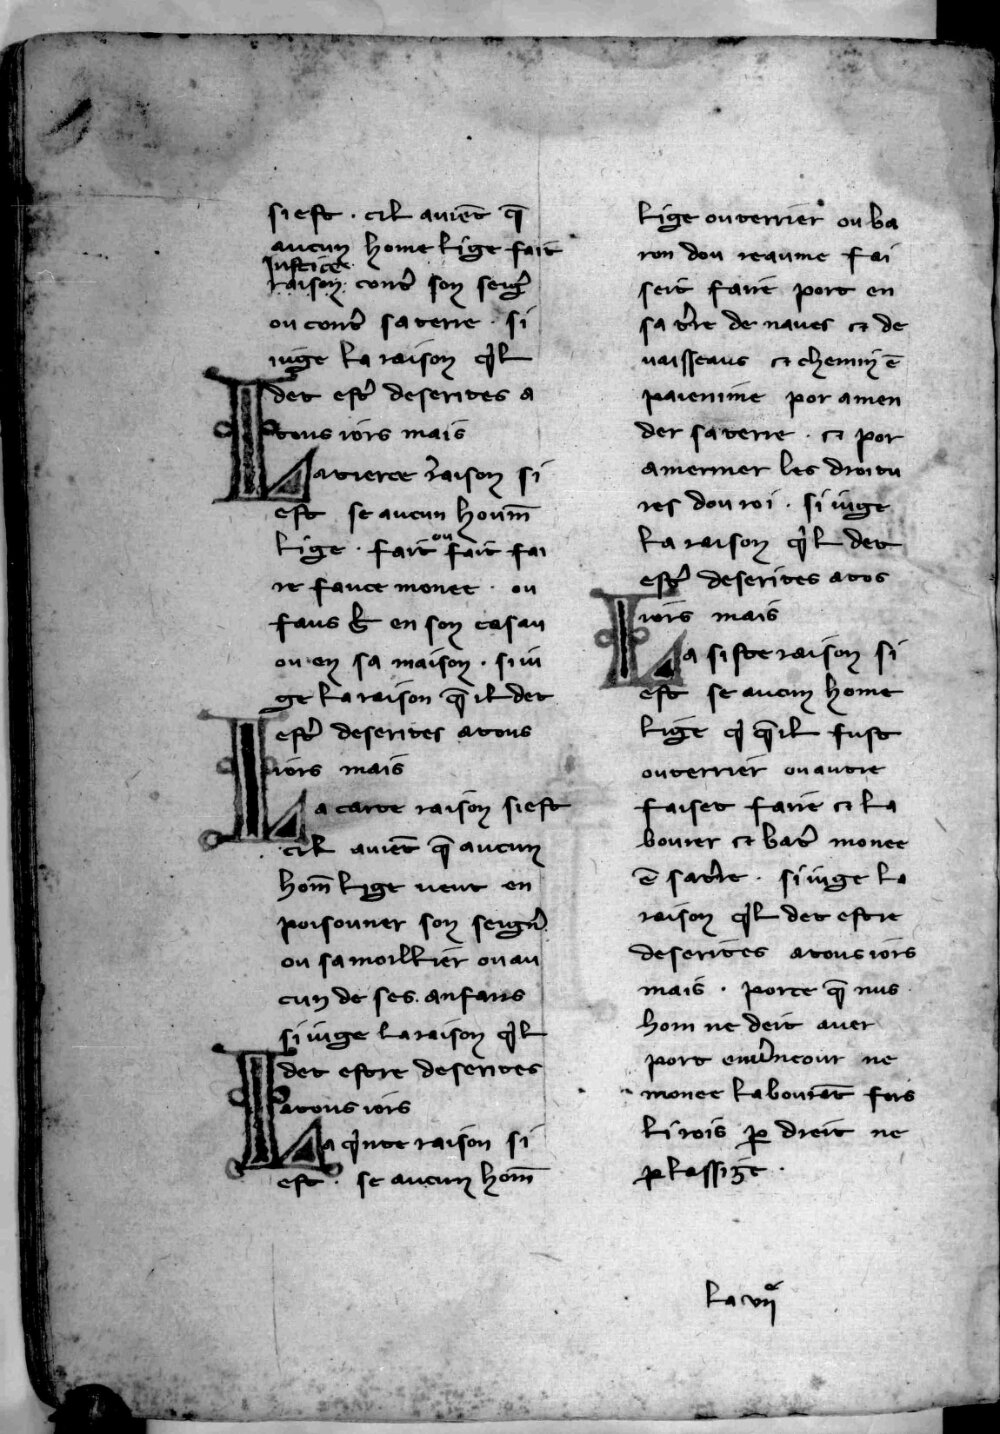 si est . cil auiēt q̄
aucun home lige fait
Justice
raison contͬ son seigͬ
ou contͬ sa terre . si
iuge la raison qͥl
det estͬ deserites a
tous iors mais
La tierce raison si
est se aucun houm̄
lige . fait ou fait fai
re fauce monee . ou
faus en son casau
ou en sa maison . si iu
ge la raison q̄ il det
estͬ deserites a tous
iors mais
La carte raison si est
cil auiēt q̄ aucun
hom̄ lige veut en
poisouner son seignͬ
ou sa moillier ou au
cun de ses anfans
si iuge la raison qͥl
det estre deserites
a tous iors
La qͥnte raison si
est . se aucun hom̄
lige ou terrier ou ba
ron dou reaume fai
seit faire port en
sa tͬre de naues et de
vaisseaus et chemin ē
paienime por amen
der sa terre . et por
amermer les droitu
res dou roi . si iuge
la raison qͥl det
estͬ deserites a tos
iors mais
La siste raison si
est se aucun home
lige qͥ q̄ il fust
ou terrier ou autre
faiset faire et la
bourer et batͬ monee
ē sa tͬre . si iuge la
raison qͥl det estre
deserites a tous iors
mais . porce q̄ nus
hom ne deit auer
port ne
monee labourāt fors
li rois ꝑ dreit ne
ꝑ lassize .
la vii^e